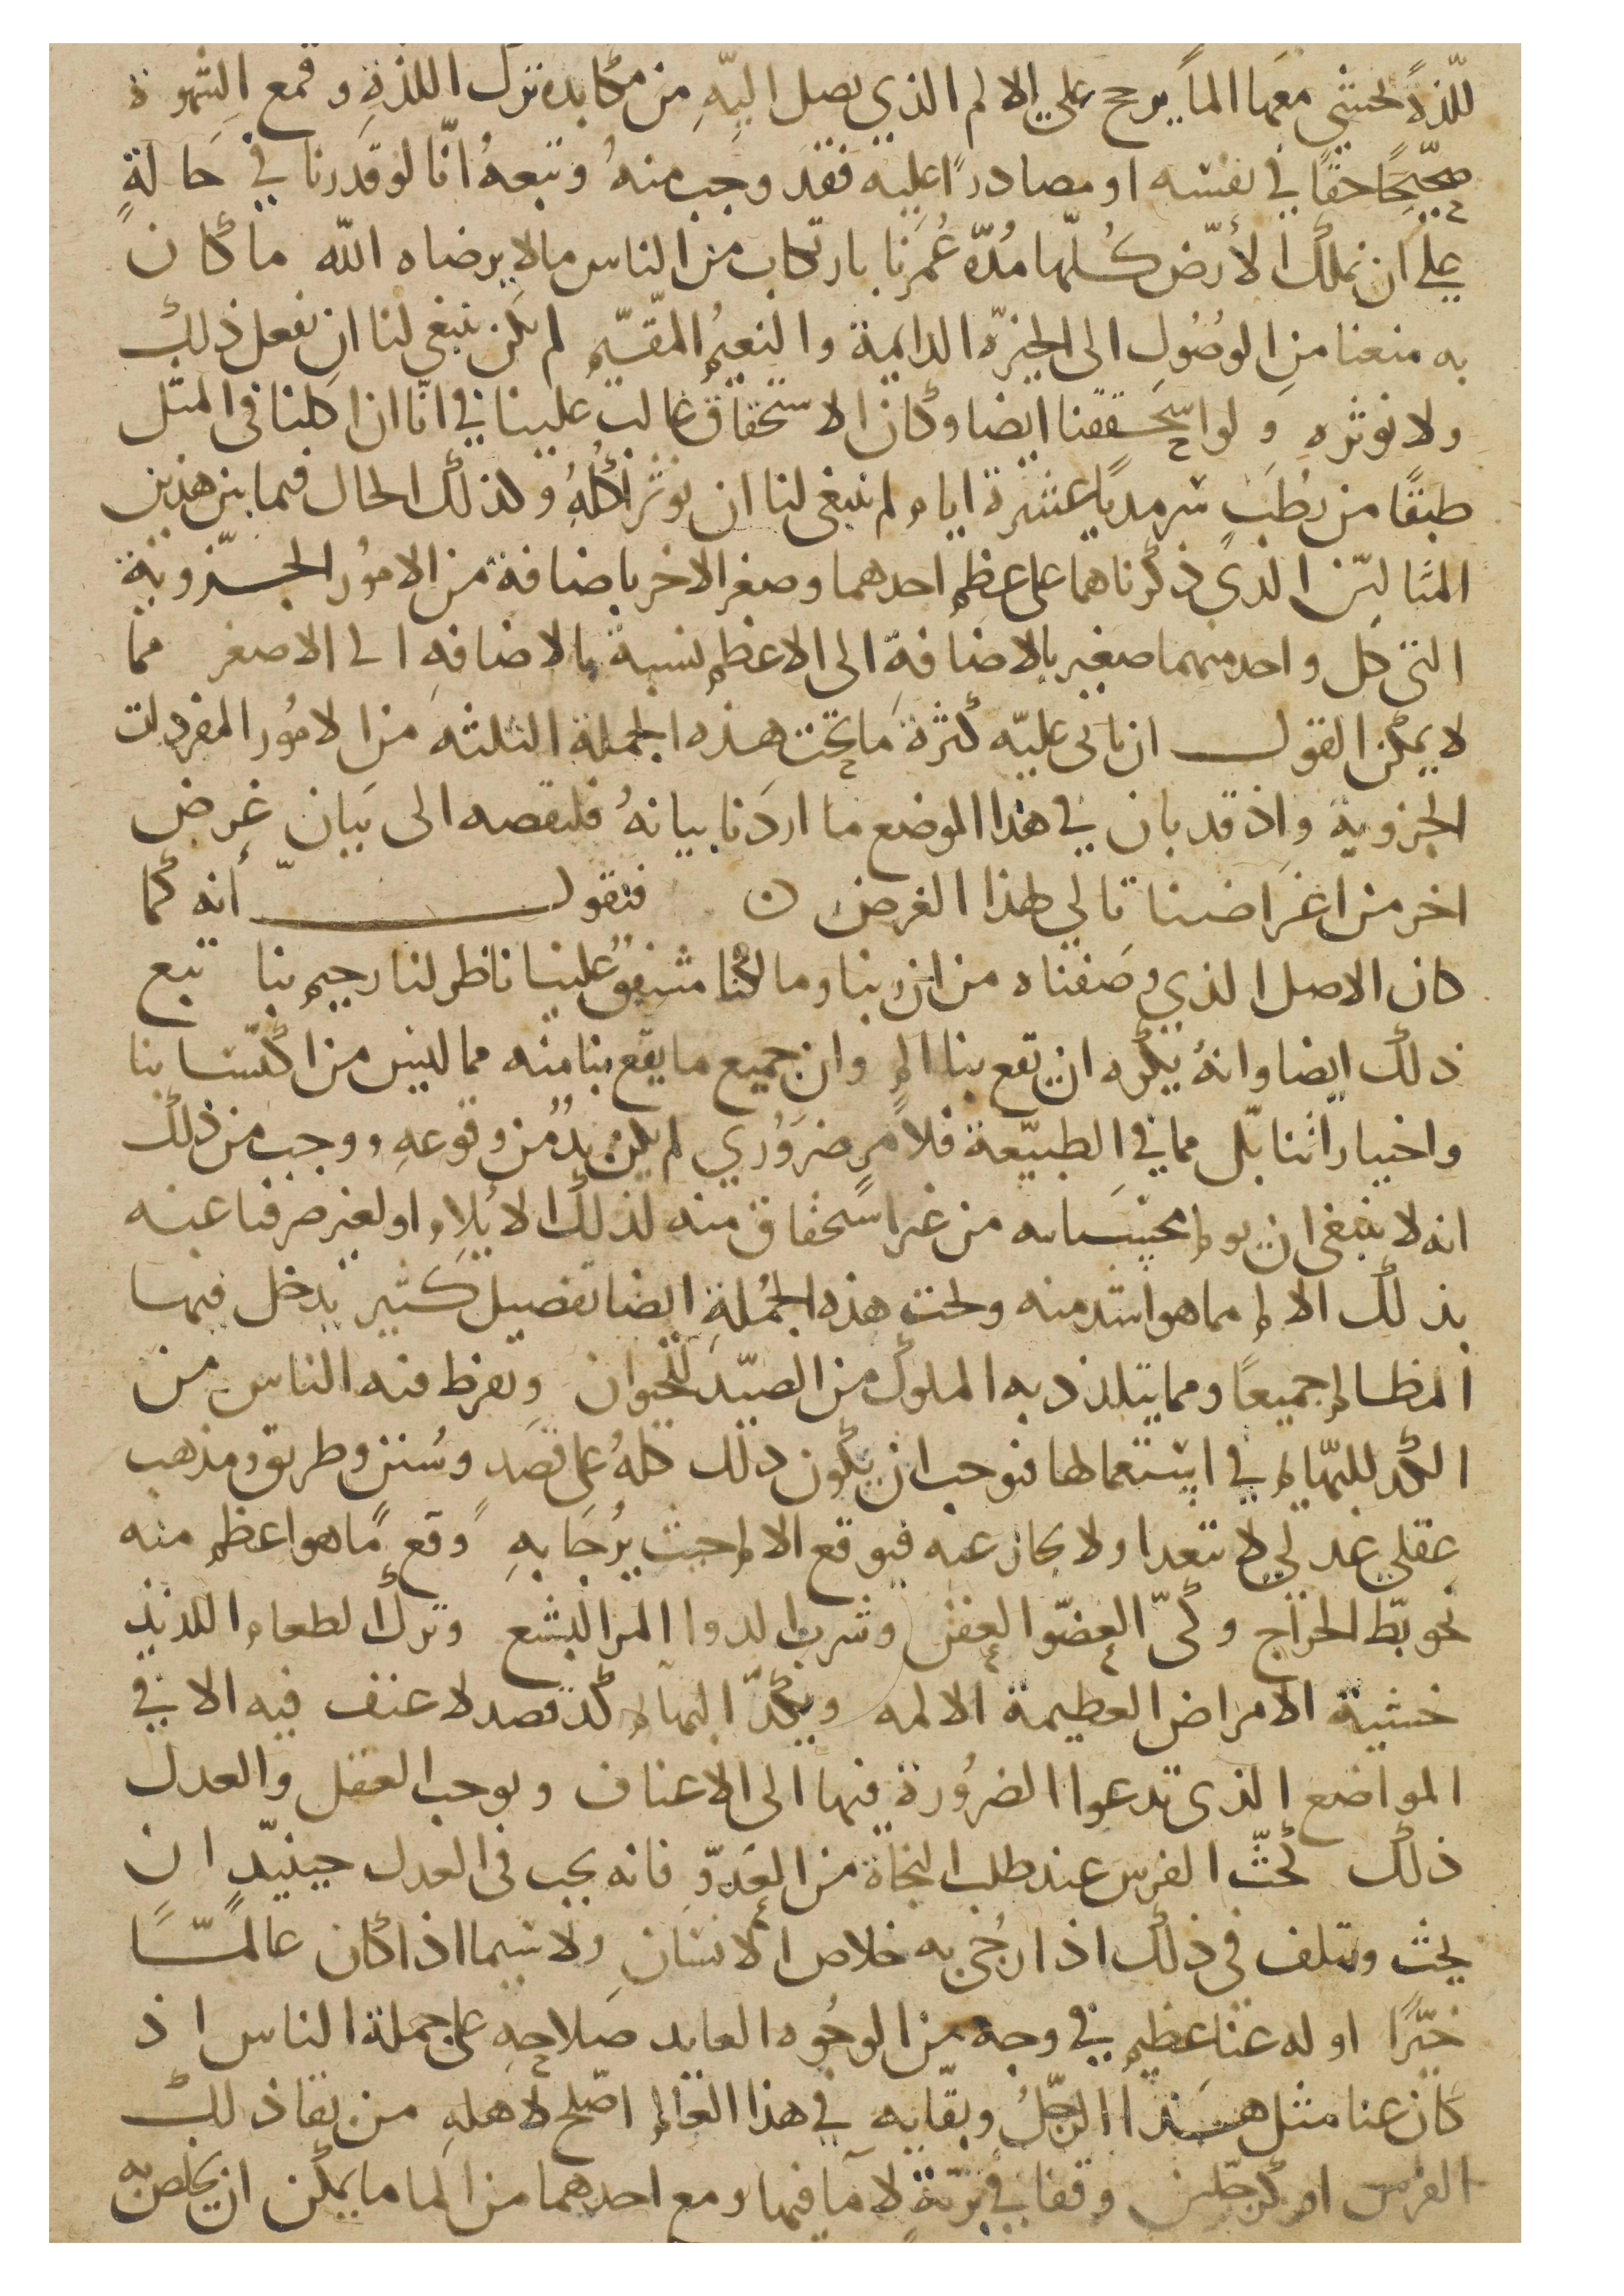 للذة نخشى معها الماً يرجح على الالم الذي يصل اليه من مكابدة ترك اللذة وقمع الشهوة
صحيحاً حقاً في نفسه او مصادراً عليه فقد وجب منهُ وتبعهُ انّا لو قدرنا في حالةٍ
على ان نملك الأرض كُلّها مُدّة عُمرنا بارتكاب من الناس مالا يرضاه الله ما كان
به منعنا من الوصُول الى الخيرة الدايمة والنعيمُ المقيم لم يكن ينبغي لنا ان نفعل ذلك
ولا نوثره ولو استحققنا ايضا وكان الاستحقاق غالب علينا في انّا ان اكلنا فى المثل
طبقًا من رطب سرمدياً عشرة ايام لم ينبغي لنا ان نوثر اكلهُ وكذلك الحال فيما بين هذين
المثالين الذي ذكرناهما على عظم احدهما وصغر الاخر باضافة من الامُور الجزوية
التى كل واحد منهما صغير بالاضافة الى الاعظم نسبة بالاضافة الى الاصغر مما
لا يمكن القول ان ياتى عليه كثرة ما تحت هذه الجملة الثلثه من الامُور المفردات
الجزوية واذ قد بان في هذا الموضع ما اردنا بيانهُ فلنقصه الى بيان غرض
اخر من اغراضنا تالي لهذا الغرض ن فنقول أنه كما
كان الاصل الذي وصفناه من ان ربنا ومالكنا مشفق علينا ناظر لنا رحيم بنا تبع
ذلك ايضا وانهُ يكره ان يقع بنا الم وان جميع ما يقع بنا منه مما ليس من اكتسابنا
واختياراتنا بل مما في الطبيعة فلامرٍ ضرَوُري لم يكن بدُ من وقوعه ووجب من ذلك
انه لا ينبغى ان يولم من غير استحقاق منه لذلك الايلام او لغير صرفنا عنه
بذلك الالم مما هو اشد منه وتحت هذه الجُملة ايضا تفصيل كثير يدخل فيها
المظالم جميعًا ومما يتلذذ به الملوك من الصيد للحيوان ويفرط فيه الناس من
الكد للبهايم في استعمالها فيوجب ان يكون ذلك كلهُ على قصَد وسُنن وطريق ومذهب
عقلي عدلي لا يتعدا ولا يجاز عنه فيوقع الالم حيث يُرجَا به دفع ما هو اعظم منه
نحو بطّ الخراج وكيّ العضو العفن وشرب الدوا المر البشع وترك الطعام اللذيذ
خشية الامراض العظيمة الالمه ويكدّ البهايم كد قصد لا عنف فيه الا في
المواضع الذى تدعوا الضرُورة فيها الى الاعناف ويوجب العقل والعدل
ذلك كحثّ الفرس عند طلب النجاة من العدوّ فانه يجب فى العدل حينيذ ان
يحث ويتلف فى ذلك اذا رُجي به خلاص الانسان ولا سيما اذا كان عالمًا
خيّرًا او له غنا عظيم في وجه من الوجُوه العايد صلاحه على جملة الناس اذ
كان غنا مثل هذا الرجلُ وبقايه في هذا العالم اصلح لاهله من بقا ذلك
الفرس او كرجلين وقفا في بريّةٍ لا مآ فيها ومع احدهما من الما ما يمكن ان يخلص به